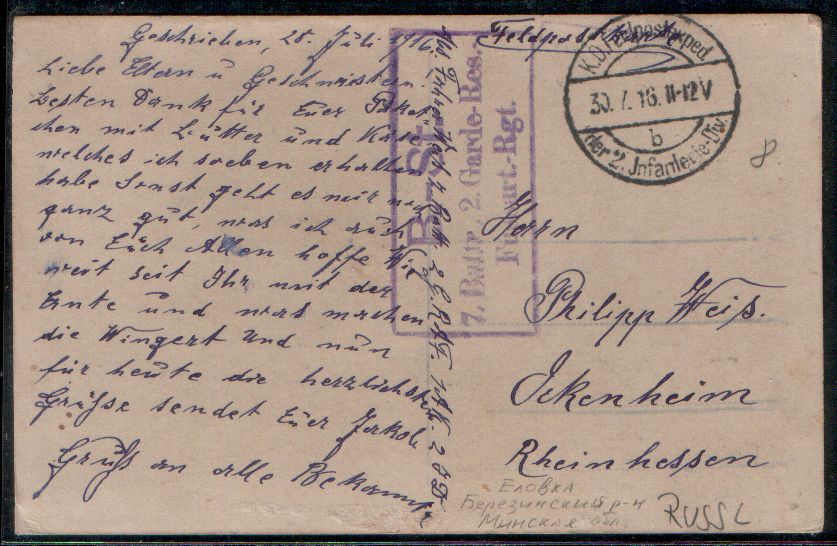 Geschrieben, 28. Juli 1916.
Liebe Eltern u Geschwister.
Besten Dank für Euer Päck
chen mit Butter und Karte
welches ich soeben erhalten
habe Sonst geht es mir noch
ganz gut, was ich auch
von Euch Allen hoffe Wie
weit seit Ihr mit der
Ernte und was machen
die Wingert und nun
für heute die herzlichsten
Grüße sendet Euer Jakob
Gruß an alle Bekannte
Feldpostkarte
B. St.
7. Battr. 2. Garde-Res.-
Fußart.-Rgt.
K.D. Feldpostexped.
30.7.16. 11-12V
b
der 2. Infanterie-Div.
8
Herrn
Philipp Weis.
Ockenheim
Rheinhessen
Еловка
Березинский р-н
Минская обл.
RUSSL